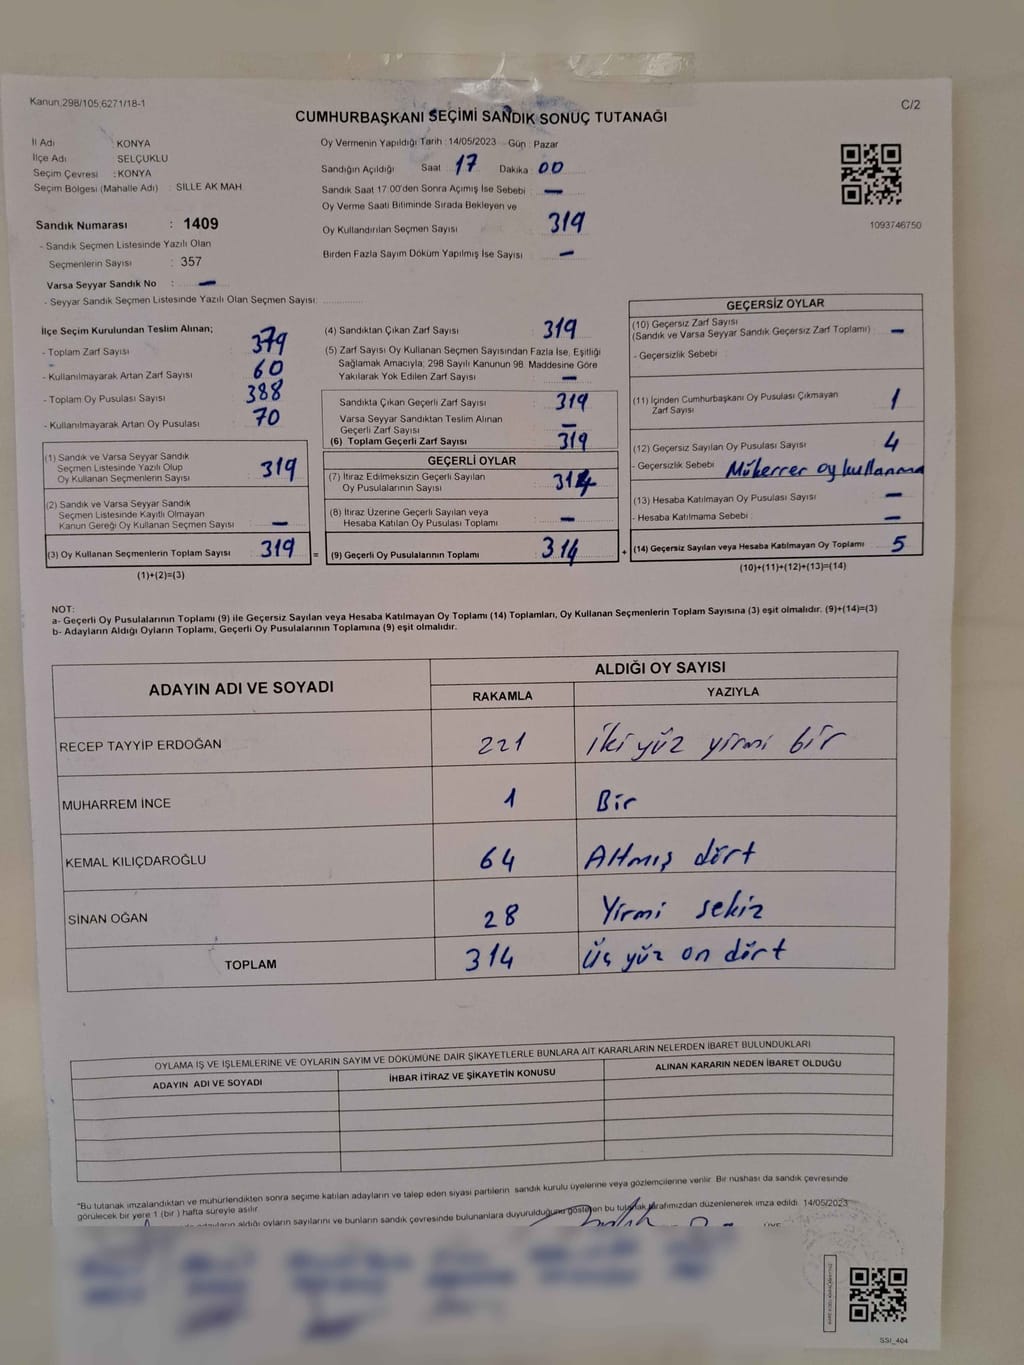 Kanun:298/105,6271/18-1
C/2
CUMHURBAŞKANI SEÇİMİ SANDIK SONUÇ TUTANAĞI
İl Adı : KONYA
İlçe Adı : SELÇUKLU
Seçim Çevresi : KONYA
Seçim Bölgesi (Mahalle Adı) : SİLLE AK MAH
Sandık Numarası : 1409
- Sandık Seçmen Listesinde Yazılı Olan
Seçmenlerin Sayısı : 357
Varsa Seyyar Sandık No : —
- Seyyar Sandık Seçmen Listesinde Yazılı Olan Seçmen Sayısı:
Oy Vermenin Yapıldığı Tarih : 14/05/2023 Gün : Pazar
Sandığın Açıldığı Saat 17 Dakika 00
Sandık Saat 17:00'den Sonra Açımış İse Sebebi : —
Oy Verme Saati Bitiminde Sırada Bekleyen ve
Oy Kullandırılan Seçmen Sayısı 319
Birden Fazla Sayım Döküm Yapılmış İse Sayısı —
1093746750
İlçe Seçim Kurulundan Teslim Alınan;
- Toplam Zarf Sayısı 379
- Kullanılmayarak Artan Zarf Sayısı 60
- Toplam Oy Pusulası Sayısı 388
- Kullanılmayarak Artan Oy Pusulası 70
(1) Sandık ve Varsa Seyyar Sandık
Seçmen Listesinde Yazılı Olup
Oy Kullanan Seçmenlerin Sayısı 319
(2) Sandık ve Varsa Seyyar Sandık
Seçmen Listesinde Kayıtlı Olmayan
Kanun Gereği Oy Kullanan Seçmen Sayısı —
(3) Oy Kullanan Seçmenlerin Toplam Sayısı 319
(1)+(2)=(3)
(4) Sandıktan Çıkan Zarf Sayısı 319
(5) Zarf Sayısı Oy Kullanan Seçmen Sayısından Fazla İse, Eşitliği
Sağlamak Amacıyla, 298 Sayılı Kanunun 98. Maddesine Göre
Yakılarak Yok Edilen Zarf Sayısı —
Sandıkta Çıkan Geçerli Zarf Sayısı 319
Varsa Seyyar Sandıktan Teslim Alınan
Geçerli Zarf Sayısı —
(6) Toplam Geçerli Zarf Sayısı 319
GEÇERLİ OYLAR
(7) İtiraz Edilmeksizin Geçerli Sayılan
Oy Pusulalarının Sayısı 314
(8) İtiraz Üzerine Geçerli Sayılan veya
Hesaba Katılan Oy Pusulası Toplamı —
= (9) Geçerli Oy Pusulalarının Toplamı 314
GEÇERSİZ OYLAR
(10) Geçersiz Zarf Sayısı
(Sandık ve Varsa Seyyar Sandık Geçersiz Zarf Toplamı) —
- Geçersizlik Sebebi :
(11) İçinden Cumhurbaşkanı Oy Pusulası Çıkmayan
Zarf Sayısı 1
(12) Geçersiz Sayılan Oy Pusulası Sayısı 4
- Geçersizlik Sebebi Mükerrer oy kullanma
(13) Hesaba Katılmayan Oy Pusulası Sayısı —
- Hesaba Katılmama Sebebi : —
+ (14) Geçersiz Sayılan veya Hesaba Katılmayan Oy Toplamı 5
(10)+(11)+(12)+(13)=(14)
NOT:
a- Geçerli Oy Pusulalarının Toplamı (9) ile Geçersiz Sayılan veya Hesaba Katılmayan Oy Toplamı (14) Toplamları, Oy Kullanan Seçmenlerin Toplam Sayısına (3) eşit olmalıdır. (9)+(14)=(3)
b- Adayların Aldığı Oyların Toplamı, Geçerli Oy Pusulalarının Toplamına (9) eşit olmalıdır.
ADAYIN ADI VE SOYADI ALDIĞI OY SAYISI
RAKAMLA YAZIYLA
RECEP TAYYİP ERDOĞAN 221 iki yüz yirmi bir
MUHARREM İNCE 1 Bir
KEMAL KILIÇDAROĞLU 64 Altmış dört
SİNAN OĞAN 28 Yirmi sekiz
TOPLAM 314 Üç yüz on dört
OYLAMA İŞ VE İŞLEMLERİNE VE OYLARIN SAYIM VE DÖKÜMÜNE DAİR ŞİKAYETLERLE BUNLARA AİT KARARLARIN NELERDEN İBARET BULUNDUKLARI
ADAYIN ADI VE SOYADI İHBAR İTİRAZ VE ŞİKAYETİN KONUSU ALINAN KARARIN NEDEN İBARET OLDUĞU
"Bu tutanak imzalandıktan ve mühürlendikten sonra seçime katılan adayların ve talep eden siyasi partilerin sandık kurulu üyelerine veya gözlemcilerine verilir. Bir nüshası da sandık çevresinde
görülecek bir yere 1 (bir) hafta süreyle asılır.
aldığı oyların sayılarını ve bunların sandık çevresinde bulunanlara duyurulduğunu gösteren bu tutanak tarafımızdan düzenlenerek imza edildi. 14/05/2023
SSI_404